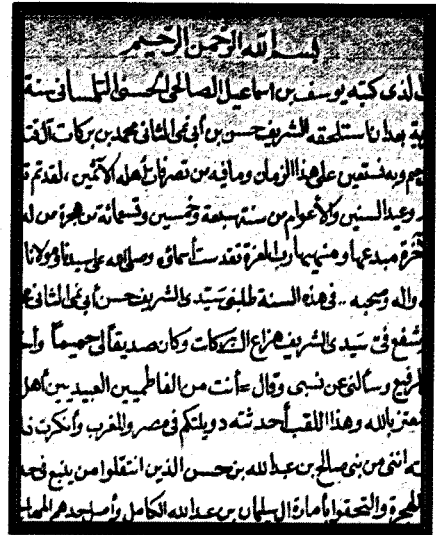 بسم الله الرحمن الرحيم
الذى كتبه يوسف بن اسماعيل الصالحى الحسنى التلمسانى سنة
بعد ان استلحقه الشريف حسن بن أبي نمى الثانى محمد بن بركات
وبه نستعين على هذا الزمان وما فيه من تصرفات أهله الآثمين ، لقد تم
وعيد السنين والأعوام من سنة سبعة وخمسين وتسعمائة من هجرة من له
مبدعها ومنهيها رب العزة تقدست أسمائه وصلى الله على سيدنا ومولانا
واله وصحبه .. فى هذه السنة طلبنى سيدى الشريف حسن أبي نمى الثانى
فى سيدى الشريف هزاع البركات وكان صديقاً لى حميماً
وسألنى عن نسبى وقال = أنت من الفاطميين العبيديين أهل
بالله وهذا اللقب أحدثته دويلتكم فى مصر والمغرب وأنكرت
اننى من بنى صالح بن عبدالله بن حسن الذين انتقلوا من ينبع
والتحقوا بأمارة ال سليمان بن عبدالله الكامل وأصل جدهم